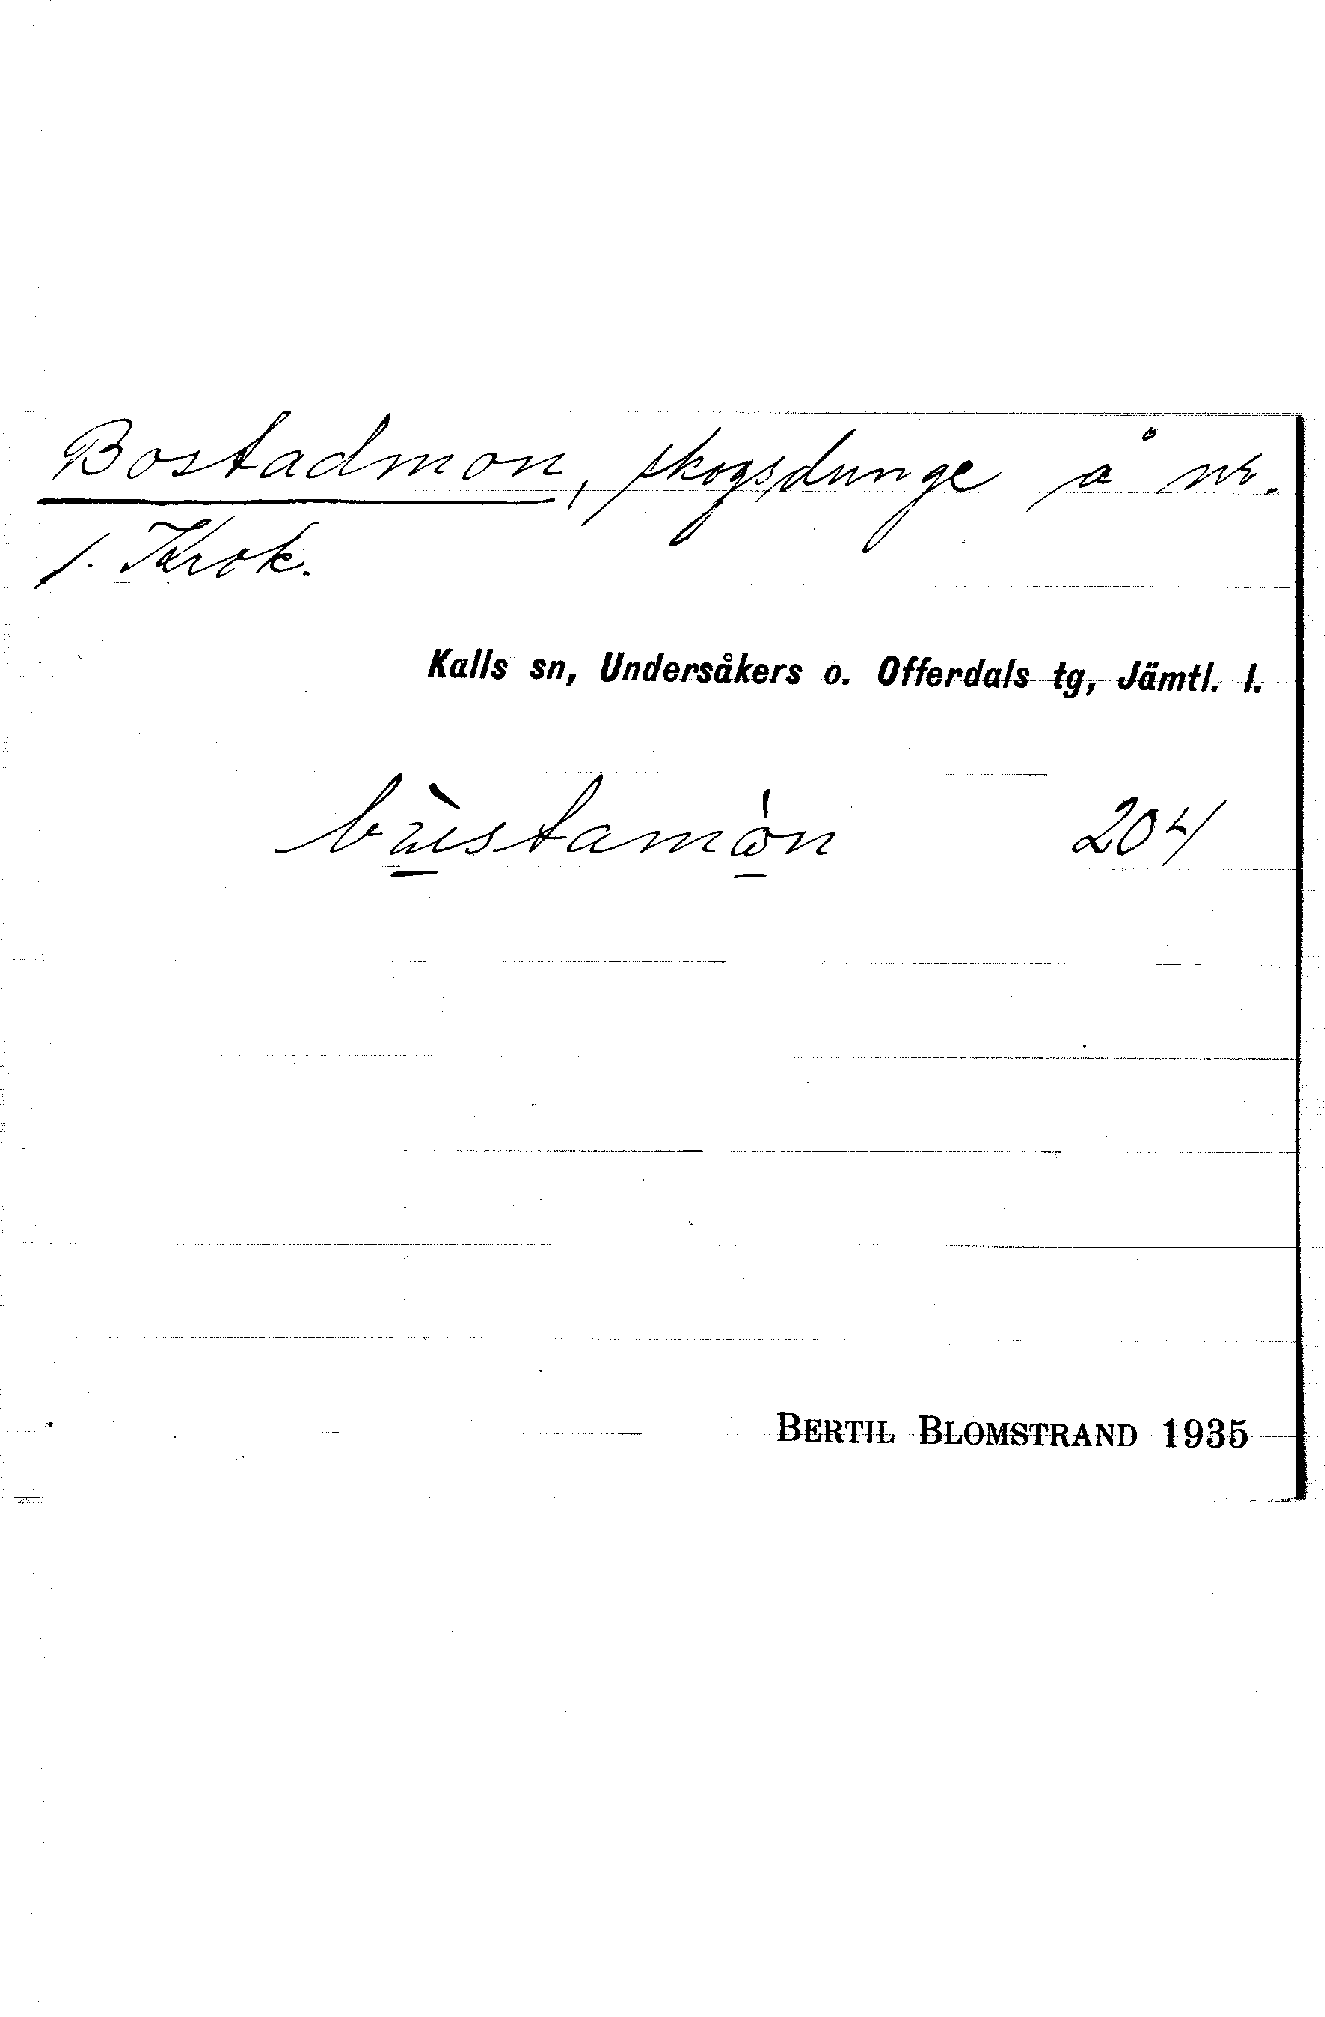 Bostadmon, skogsdunge å nr.
1. Krok.
Kalls sn, Undersåkers o. Offerdals tg, Jämtl. l.
bùstamòn 204
BERTIL BLOMSTRAND 1935